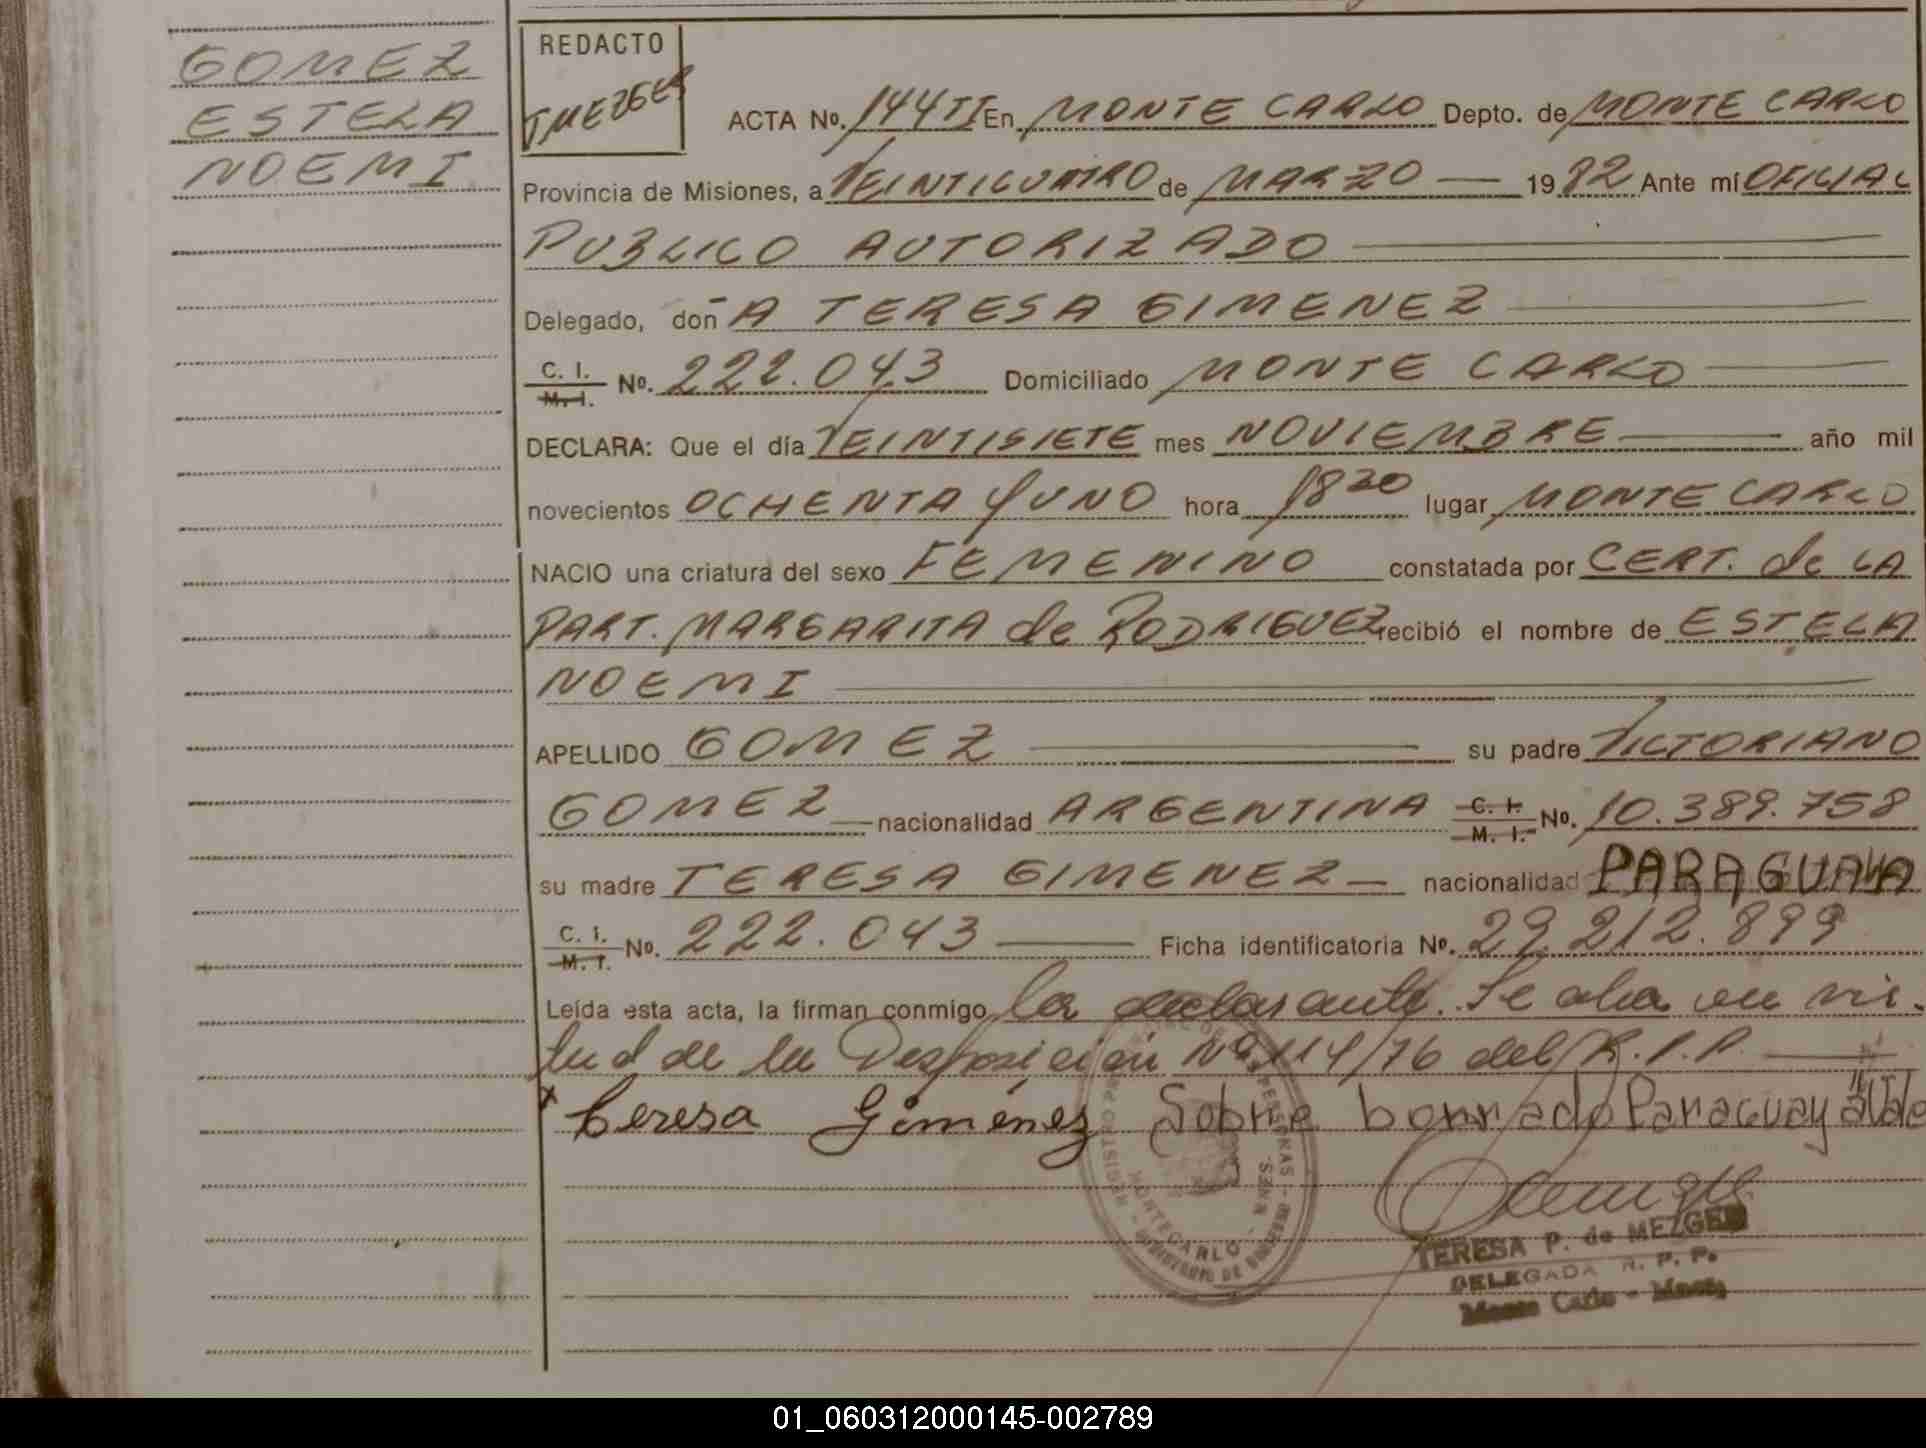 GOMEZ
ESTELA
NOEMI
REDACTO
TMEZGER
ACTA No. 144TI En MONTE CARLO Depto. de MONTE CARLO
Provincia de Misiones, a VEINTICUATRO de MARZO — 1982 Ante mí OFICIAL
PUBLICO AUTORIZADO
Delegado, doñA TERESA GIMENEZ
C. I. M. I. No. 222.043 Domiciliado MONTE CARLO
DECLARA: Que el día VEINTISIETE mes NOVIEMBRE año mil
novecientos OCHENTA Y UNO hora 1830 lugar MONTE CARLO
NACIO una criatura del sexo FEMENINO constatada por CERT. de LA
PART. MARGARITA de RODRIGUEZ recibió el nombre de ESTELA
NOEMI
APELLIDO GOMEZ su padre VICTORIANO
GOMEZ nacionalidad ARGENTINA C. I. M. I. No. 10.389.758
su madre TERESA GIMENEZ nacionalidad PARAGUAYA
C. I. M. I. No. 222.043 Ficha identificatoria No. 29.212.899
Leída esta acta, la firman conmigo la declarante. Se aba en vir-
tud de la Disposición Nº 114/76 del R.P.P.
x Teresa Giménez Sobre borrado Paraguay ä Vale
MONTECARLO
TERESA P. de MEZGER
DELEGADA R. P. P.
Monte Carlo - Mnes
01_060312000145-002789